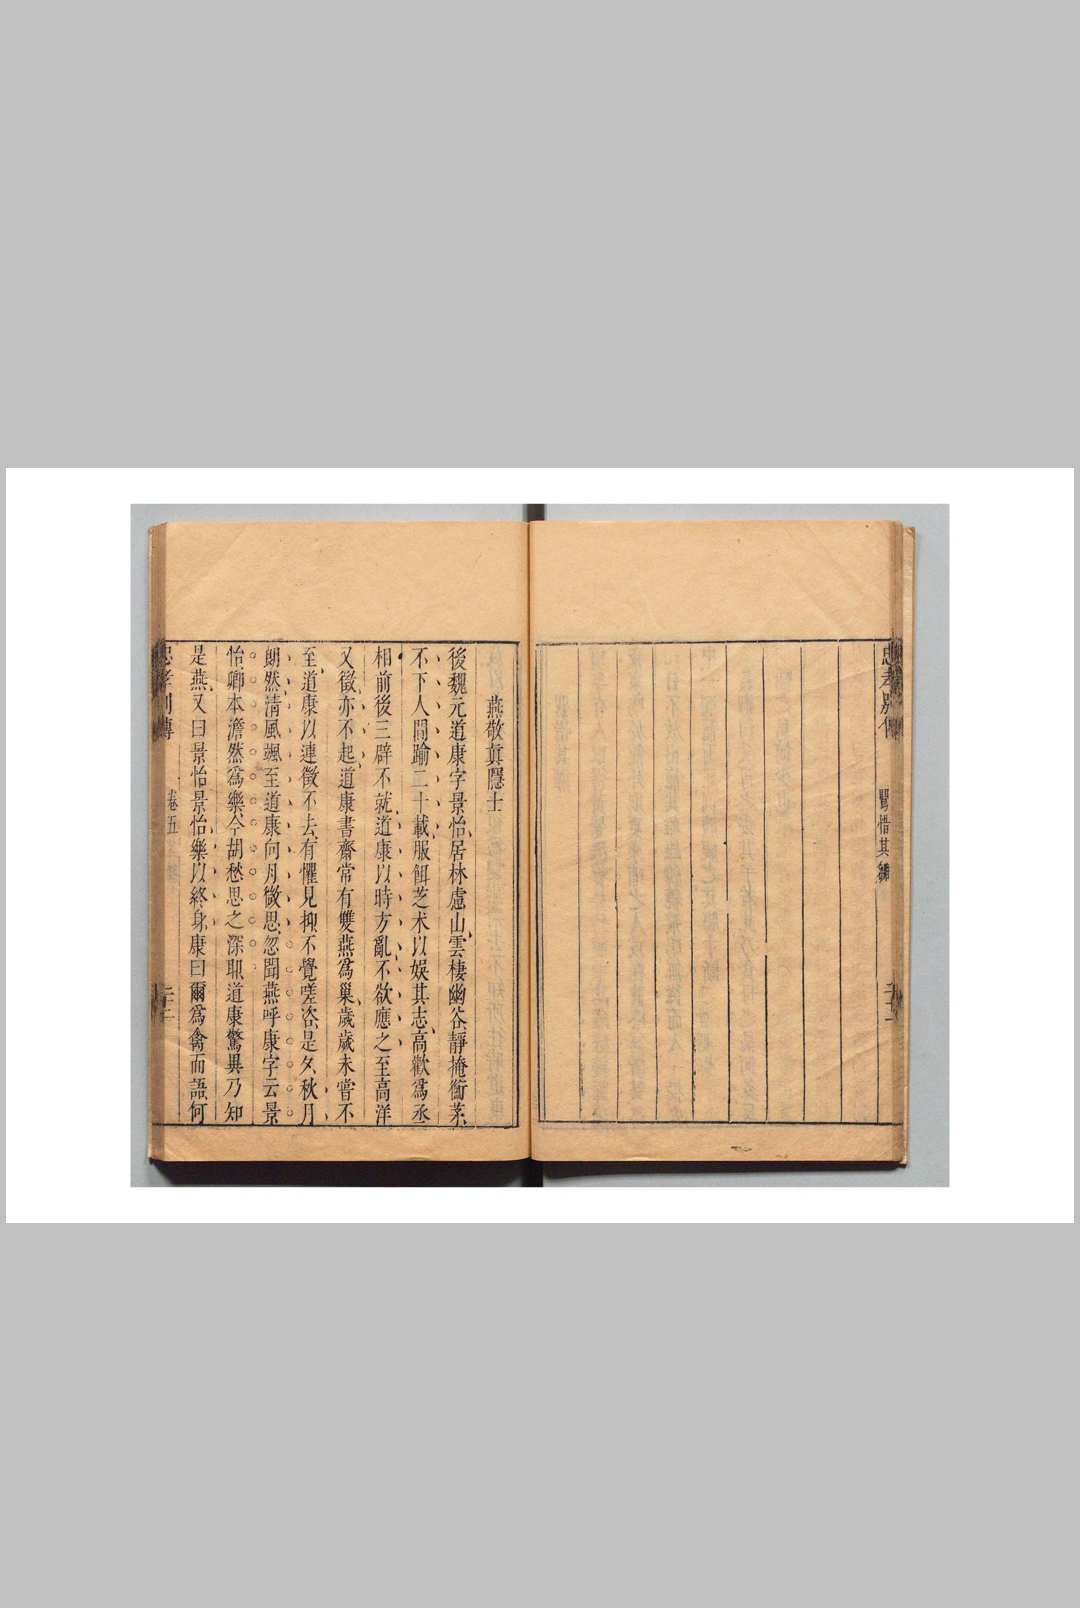 忠孝別傳
鸎惜其雛
二十二
燕敬眞隱士
後魏元道康字景怡居林慮山雲棲幽谷靜掩衡茅
不下人間踰二十載服餌芝朮以娛其志高歡爲丞
相前後三辟不就道康以時方亂不欲應之至高洋
又徵亦不起道康書齋常有雙燕爲巢歲歲未嘗不
至道康以連徵不去有懼見抑不覺嗟咨是夕秋月
朗然清風颯至道康向月微思忽聞燕呼康字云景
怡卿本澹然爲樂今胡愁思之深耶道康驚異乃知
是燕又曰景怡景怡樂以終身康曰爾爲禽而語何
忠孝別傳
卷五
二十三